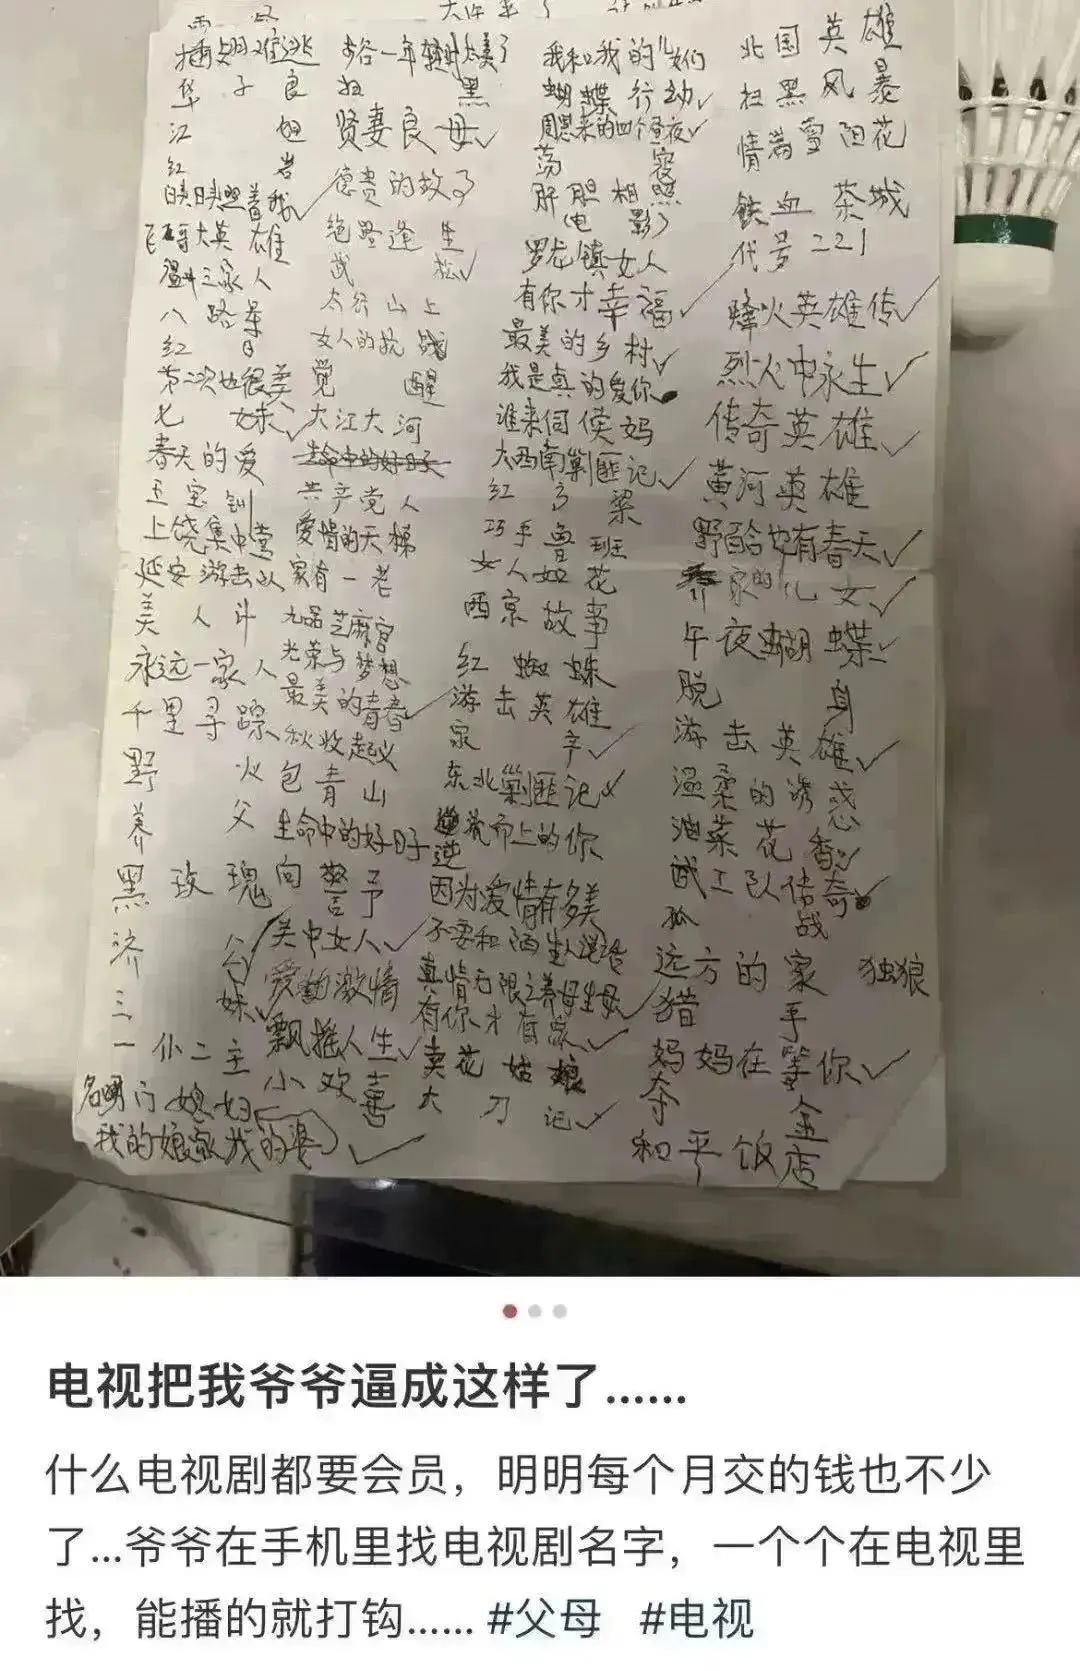 插翅难逃
华子良
江姐
红岩
映映照着我✓
飞哥大英雄
温州三家人
八路军
红日
第二次也很美
七妹✓
春天的爱
王宝钏
上饶集中营
延安游击队
美人斗
永远一家人
千里寻踪
野火
养父
黑玫瑰
济公
三妹✓
一仆二主
名门媳妇
我的娘家我的婆✓
扫黑
贤妻良母✓
德贵的故事
绝路逢生
武松✓
太行山上
女人的抗战
觉醒
大江大河
生命中的好日子
共产党人
爱情的天梯
家有一老
九品芝麻官
光荣与梦想
最美的青春✓
秋收起义
包青山
生命中的好日子
向警予
关中女人✓
爱的激情
飘摇人生✓
小欢喜
我和我的儿女们
蝴蝶行动✓
周恩来的四个昼夜✓
荡寇
肝胆相照
电影了
罗龙镇女人
有你才幸福✓
最美的乡村✓
我是真的爱你
谁来伺候妈
大西南剿匪记✓
红高粱
巧手鲁班
女人如花
西京故事
红蜘蛛
游击英雄
家宴✓
东北剿匪记✓
逆流而上的你
因为爱情有多美
不要和陌生人说话
真情无限之养母生母✓
有你才有家✓
卖花姑娘
大刀记✓
北国英雄
扫黑风暴
情满雪阳花
铁血茶城
代号221
烽火英雄传✓
烈火中永生✓
传奇英雄✓
黄河英雄
野百合也有春天✓
乔家的儿女✓
午夜蝴蝶✓
脱身
游击英雄✓
温柔的诱惑
油菜花香✓
武工队传奇✓
孤战
远方的家
独狼
猎手
妈妈在等你✓
夺金
和平饭店
电视把我爷爷逼成这样了……
什么电视剧都要会员，明明每个月交的钱也不少
了...爷爷在手机里找电视剧名字，一个个在电视里
找，能播的就打钩…… #父母 #电视